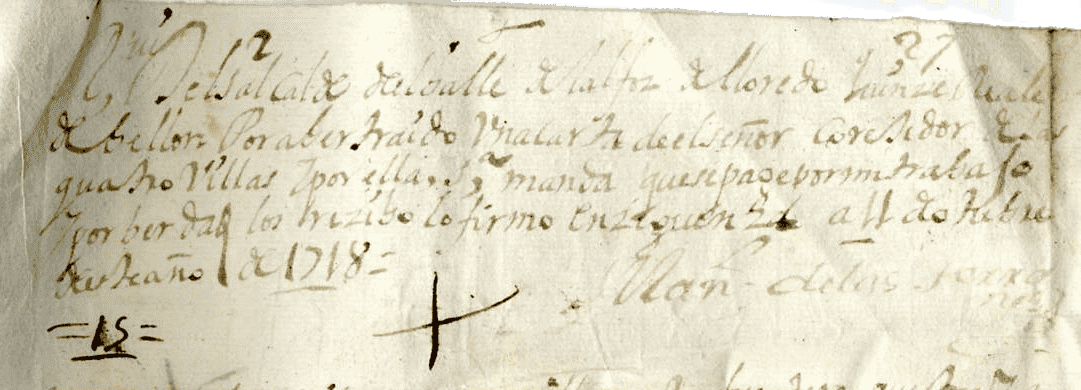 del sr alcalde del valle de alfoz de lloredo quinze Reales
de bellon Por aber traido Una carta de el señor coreJidor de las
quatro Villas Y por ella, se manda que se page por mi trabaJo
Y por berdad los rrezibo lo firmo en zeguen a 11 de otubre
de este año de 1718=
Man de las
=15=